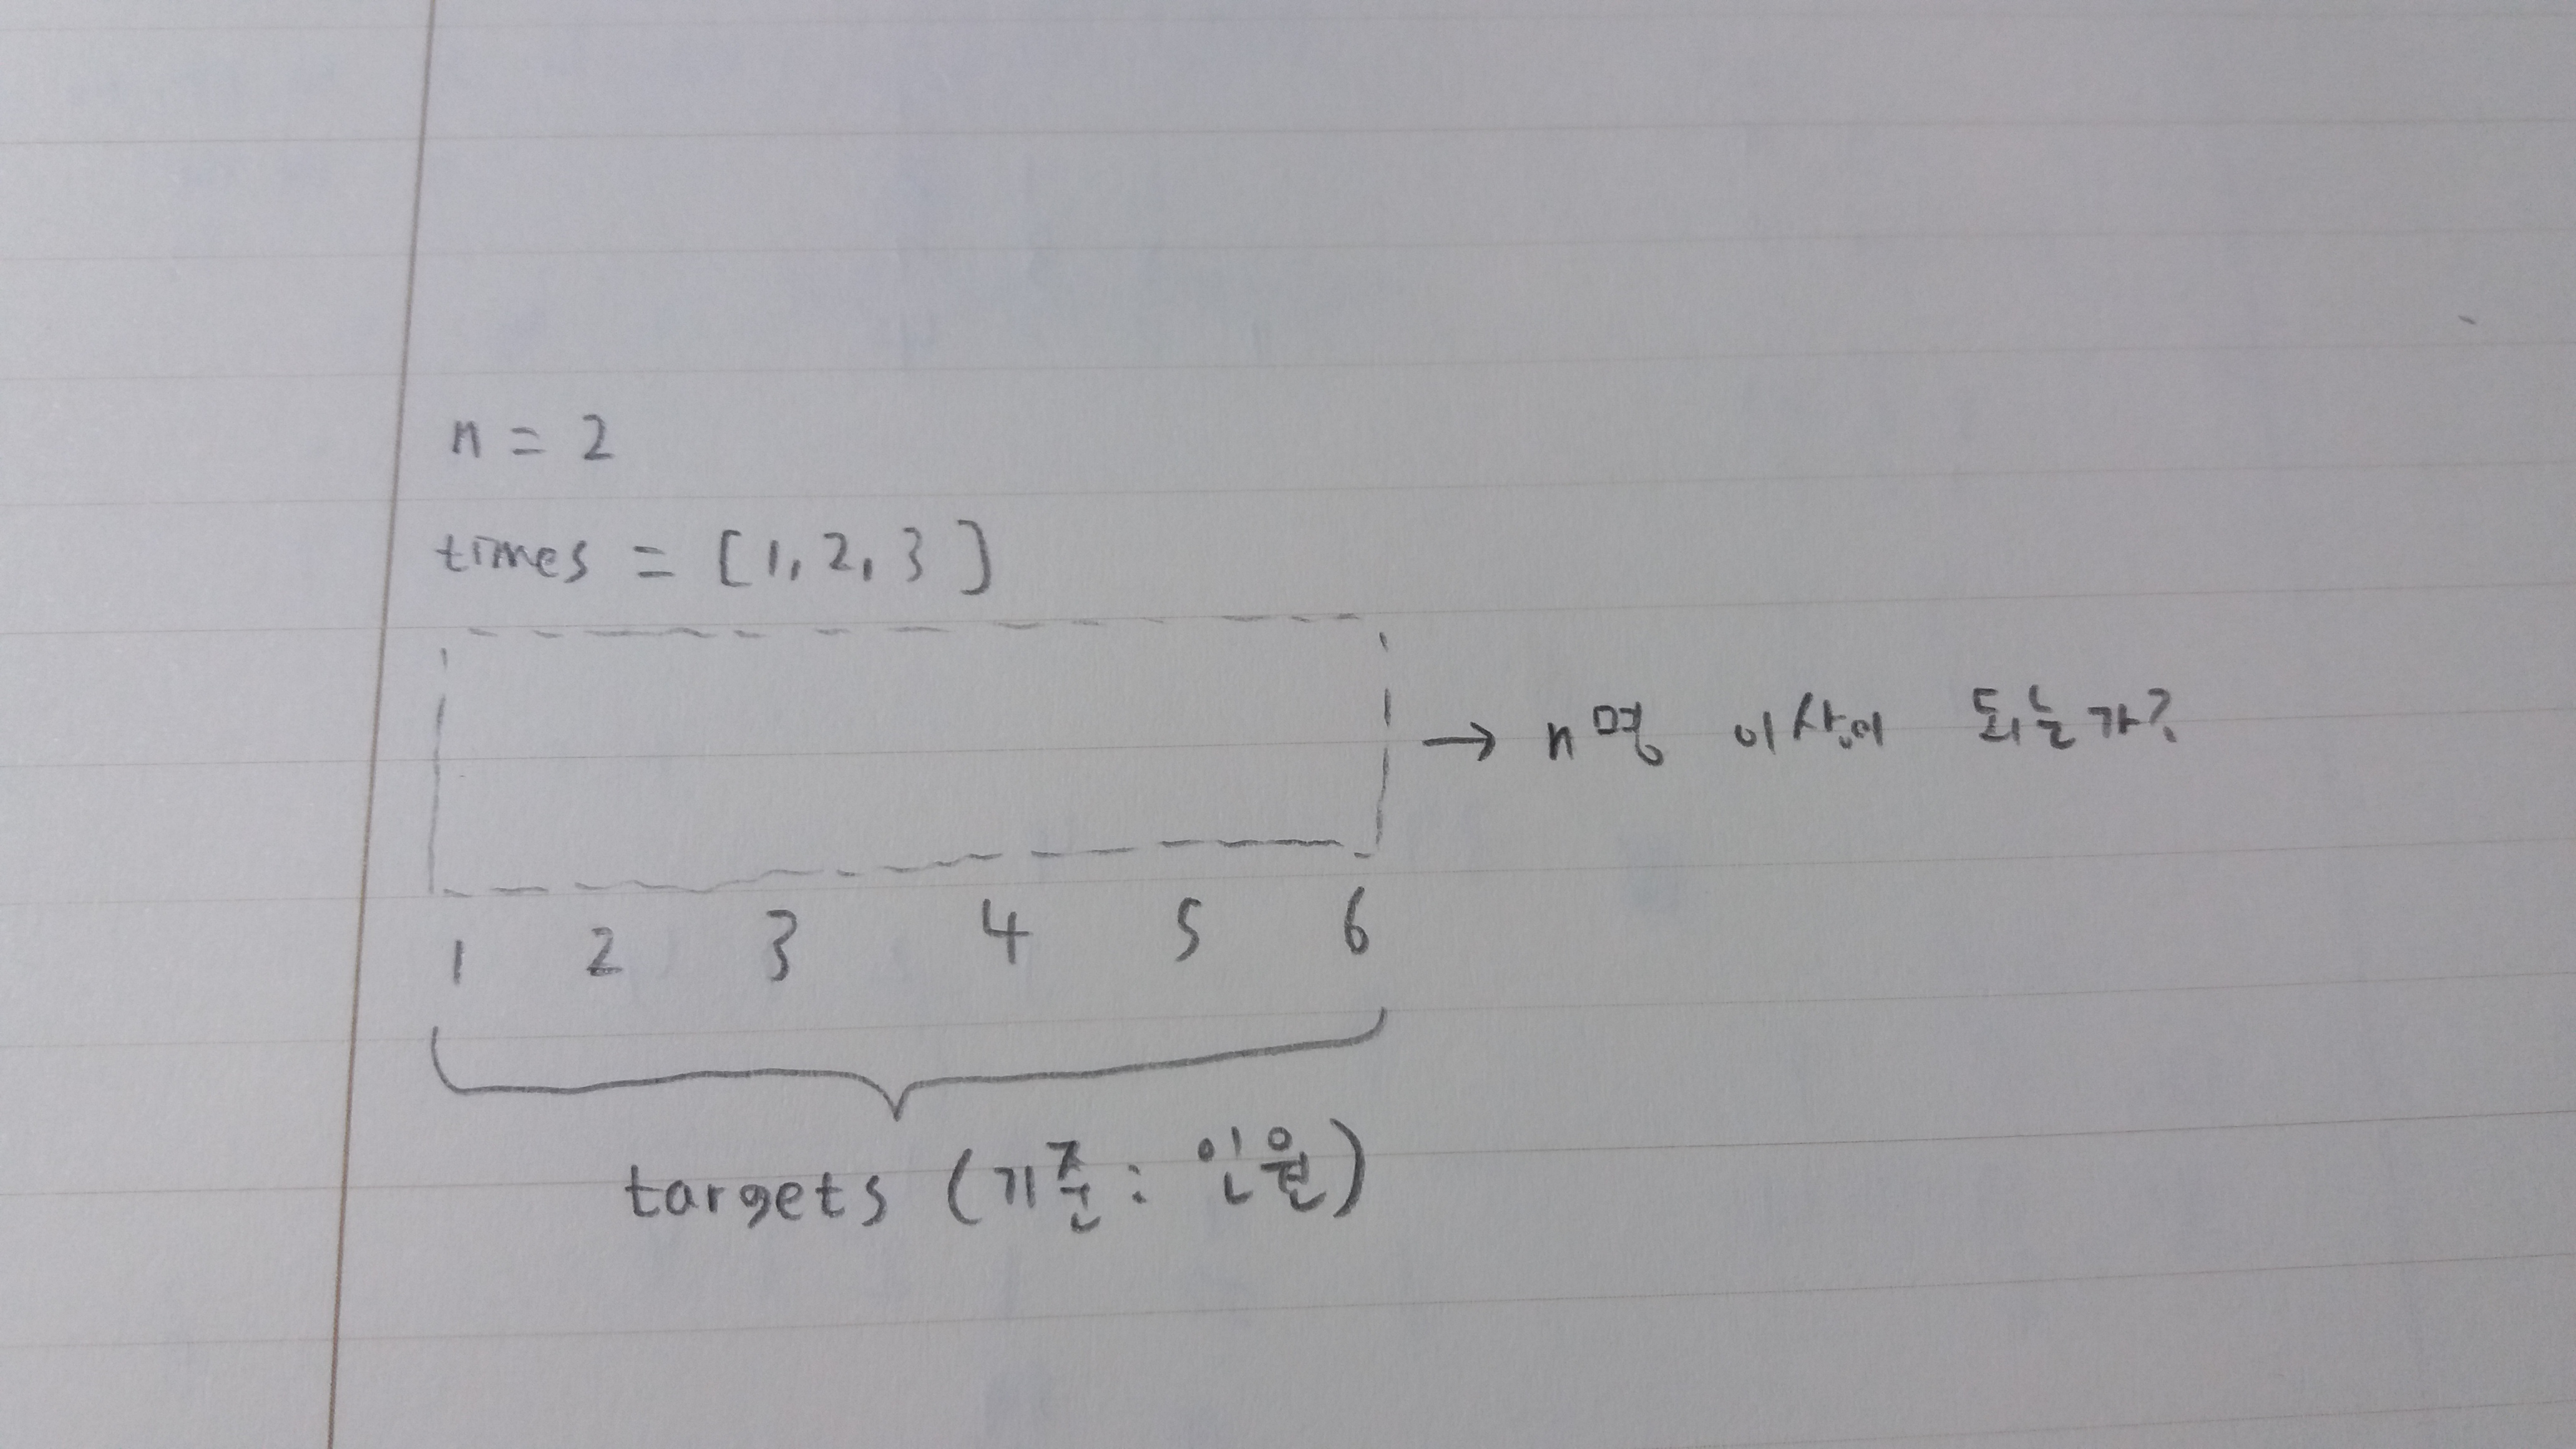 n = 2
times = [1, 2, 3]
→ n명 이상이 되는가?
1 2 3 4 5 6
targets (기준: 인원)